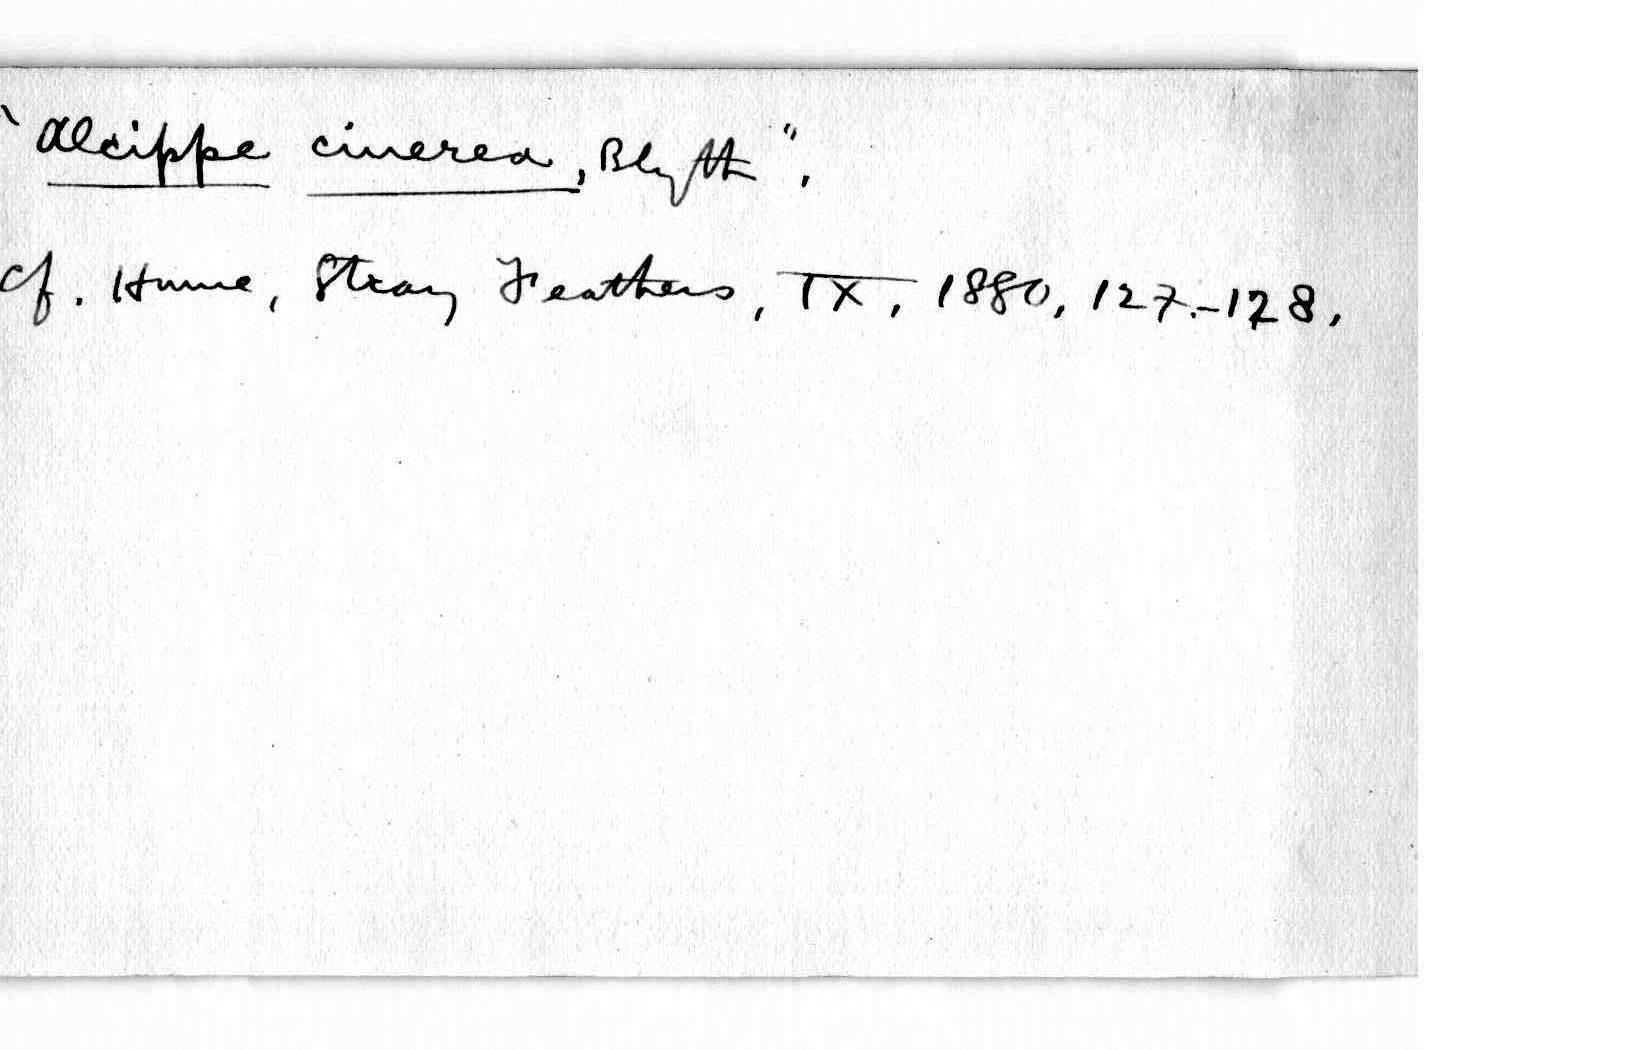 "Alcippe cinerea, Blyth".
cf. Hume, Stray Feathers, IX, 1880, 127-128.